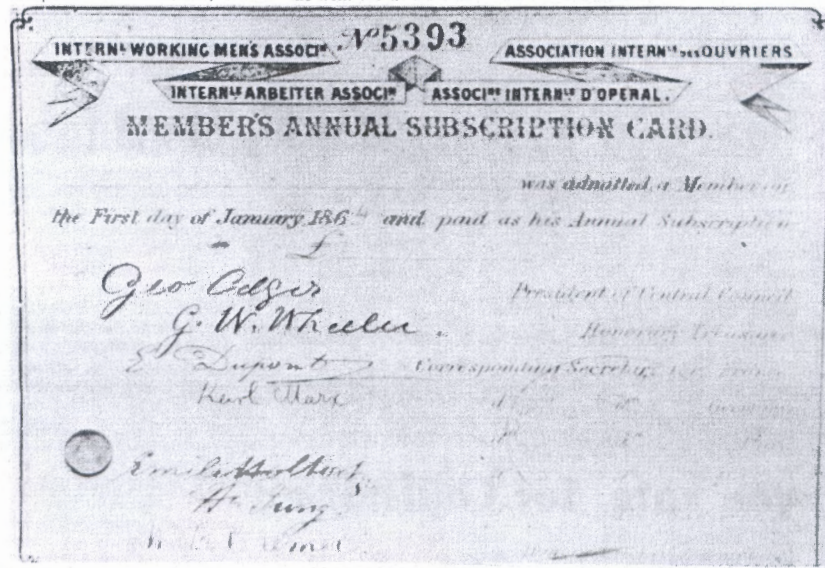 Nº 5393
INTERNL WORKING MEN'S ASSOCIN
ASSOCIATION INTERNLE DES OUVRIERS
INTERNLE ARBEITER ASSOCIN
ASSOCINE INTERNLE D'OPERAI.
MEMBER'S ANNUAL SUBSCRIPTION CARD.
was admitted a Member on
the First day of January 186 and paid as his Annual Subscription
Geo Odger President of Central Council
G. W. Wheeler. Honorary Treasurer
E Dupont Corresponding Secretary for France
Karl Marx Germany
Emile Holtorp
H. Jung